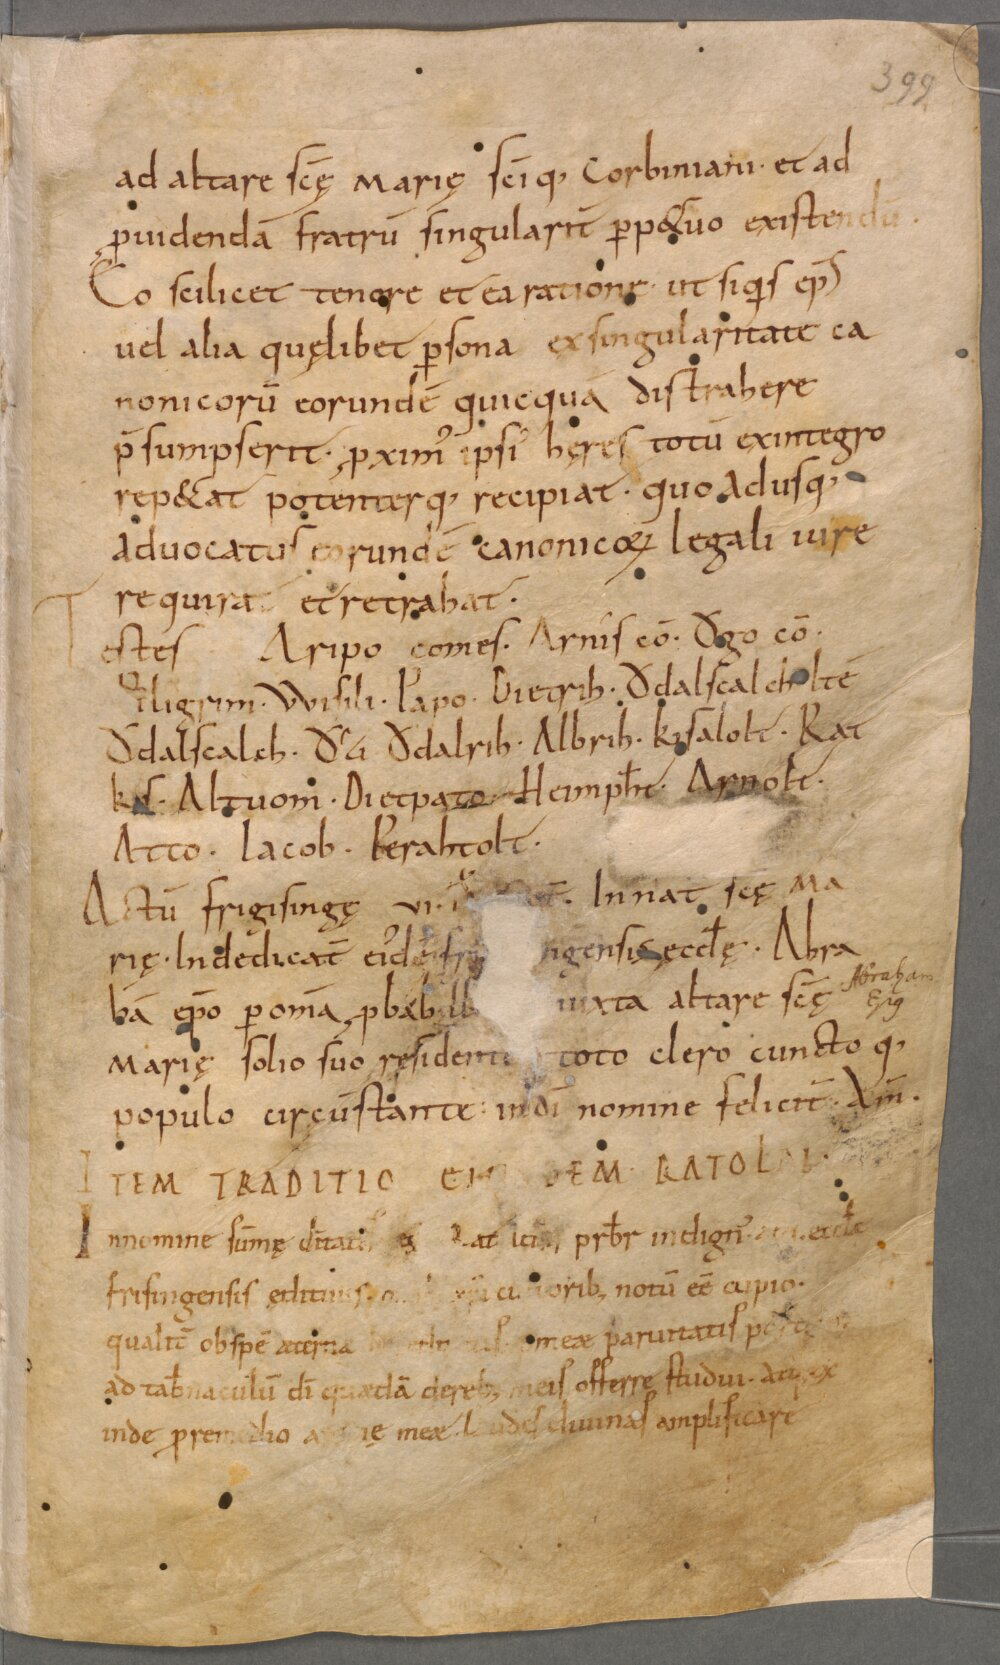 399
ad altare scę Marię sciq, Corbiniani· et ad
puidendā fratrū singularit̄ pp&uo existendū·
Eo scilicet tenore et ea ratione· ut siq̇s ep̄s
uel alia quęlibet p̲sona ex singularitate ca
nonicorū eorundē quicquā distrahere
p̄sumpserit· pxim᾽ ipsi᾽ heres totū exintegro
rep&at potenterq, recipiat· quo adusq,
aduocatus eorundē canonicoꝝ legali iure
requirat et retrahat·
Testes Aripo comes· Arnis cō· Ǒdgo cō·
Piligrim· VVisili· Papo· Dietrih· Ǒdalscalch
Ǒdalscalch· Ǒdalrih· Albrih· kisalolt· Rat
kis· Altuom· Dietpato· Heimpħt· Arnolt·
Atto· Iacob· Perahtolt·
Actū frigisingę vi· In nat scę Ma
rię· In dedicat̄ ei᾽dē ngensis ęccłę· Abra
hā ep̄o p omā iuxta altare scę
Abraham
Ep̄s
Marię solio suo residente toto clero cuncto q,
populo circūstante· in dī nomine felicit̄· Am̄·
ITEM TRADITIO DEM RATOL
Innomine sūmę prb̄r indign᾽ eccłe
frisingensis ędituus· orib, notū eē cupio·
qualit̄ ob spē aeterna meae paruitatis
ad tab̄naculū dī quaedā de reb, meis offerre studui· atq, ex
inde p remedio meae laudes diuinas amplificari